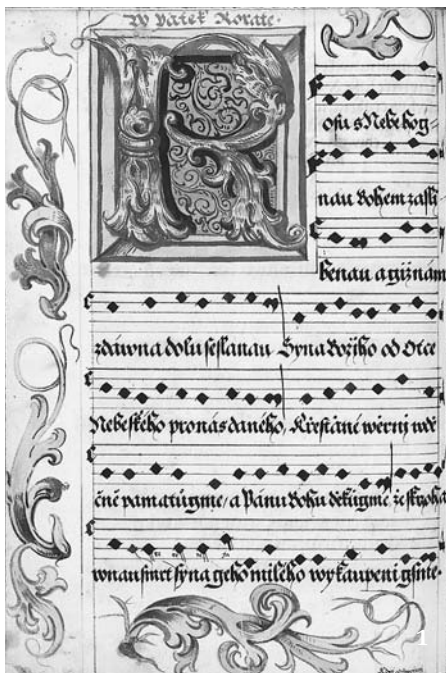 W pátek Rorate.
R
osu s Nebe hog
nau Bohem zasli
benau a gižnám
zdáwna dolu seslanau Syna Božího od Otce
Nebeského pro nás daného, Křestiané wěrnj wdě
čně pamatůgme, a Pánu Bohu děkůgme že skrze ha
wnau smrt syna geho milého wykaupeni gsme.
1